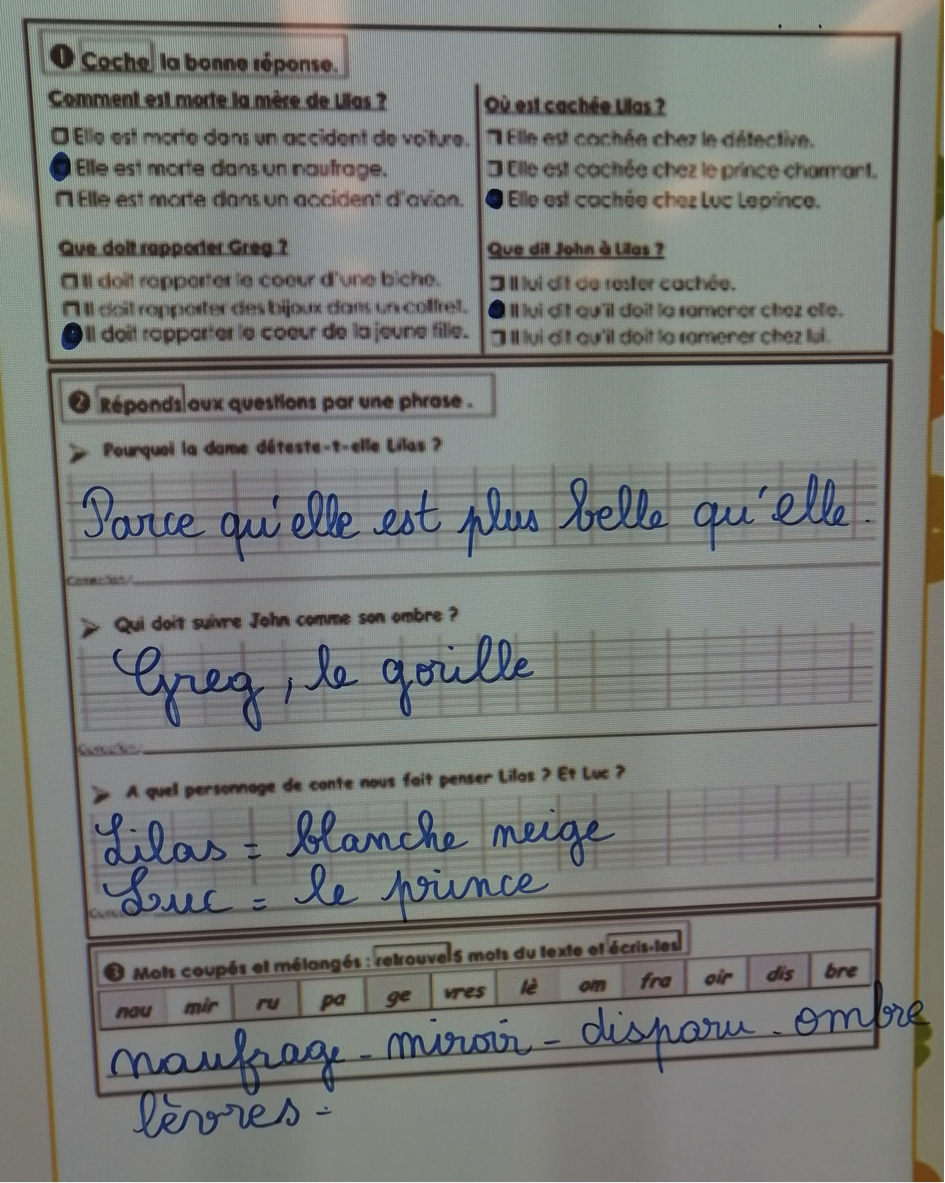 ❶ Coche la bonne réponse.
Comment est morte la mère de Lilas ?
Elle est morte dans un accident de voiture.
Elle est morte dans un naufrage.
Elle est morte dans un accident d'avion.
Où est cachée Lilas ?
Elle est cachée chez le détective.
Elle est cachée chez le prince charmant.
Elle est cachée chez Luc Leprince.
Que doit rapporter Greg ?
Il doit rapporter le coeur d'une biche.
Il doit rapporter des bijoux dans un coffret.
Il doit rapporter le coeur de la jeune fille.
Que dit John à Lilas ?
Il lui dit de rester cachée.
Il lui dit qu'il doit la ramener chez elle.
Il lui dit qu'il doit la ramener chez lui.
❷ Réponds aux questions par une phrase .
➢ Pourquoi la dame déteste-t-elle Lilas ?
Parce qu'elle est plus belle qu'elle.
Correction :
➢ Qui doit suivre John comme son ombre ?
Greg, le gorille
Correction :
➢ A quel personnage de conte nous fait penser Lilas ? Et Luc ?
Lilas = blanche neige
Luc = le prince
❸ Mots coupés et mélangés : retrouve 5 mots du texte et écris-les
nau mir ru pa ge vres lè om fra oir dis bre
naufrage - miroir - disparu - ombre
lèvres -